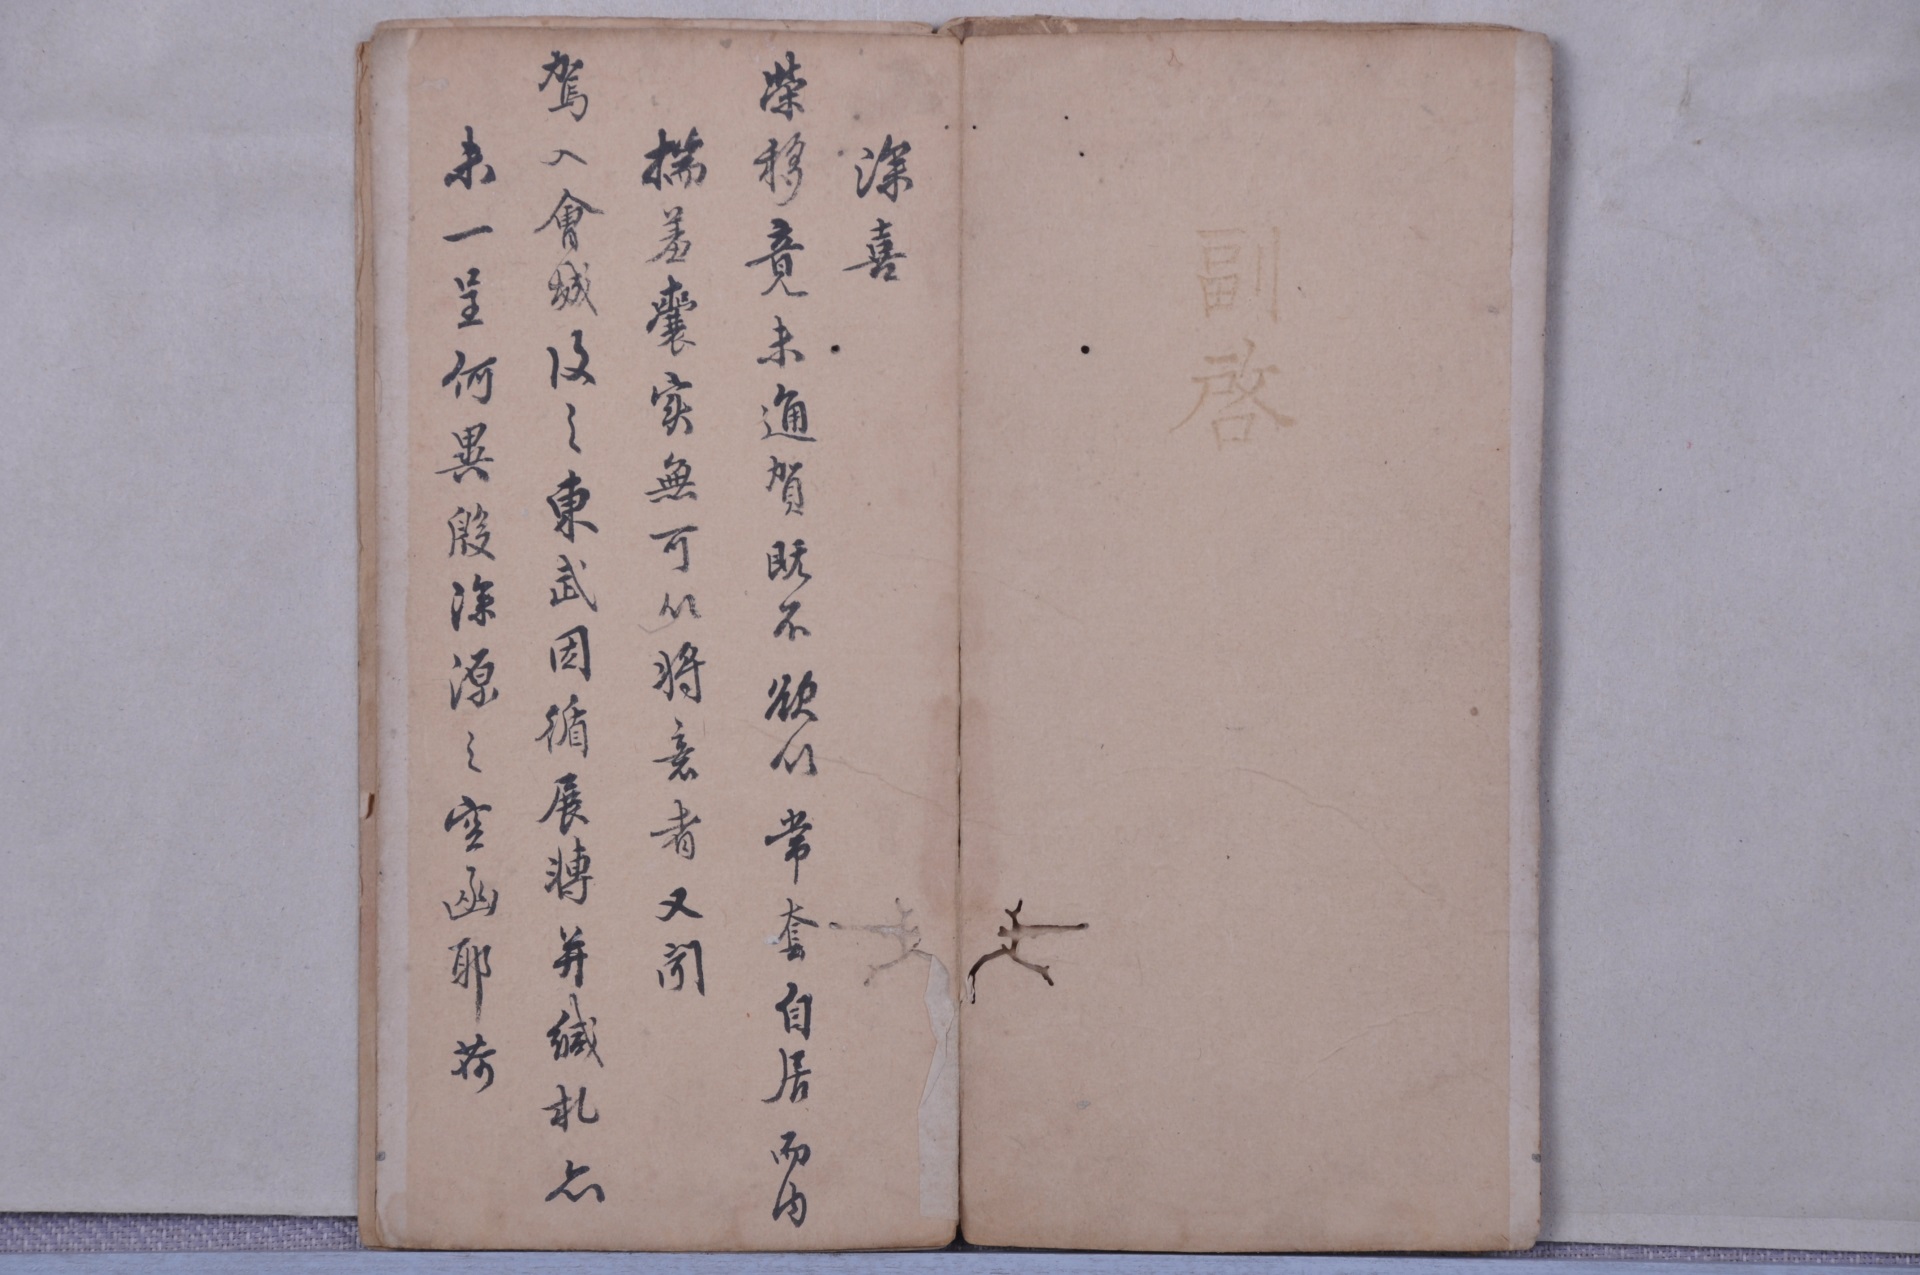 副啓
深喜
榮移竟未通賀既不欲以常套自居而内
揣羞囊实無可以將意者又聞
駕入會城及之東武因循展轉并緘札亦
未一呈何異殷深源之空函耶荷